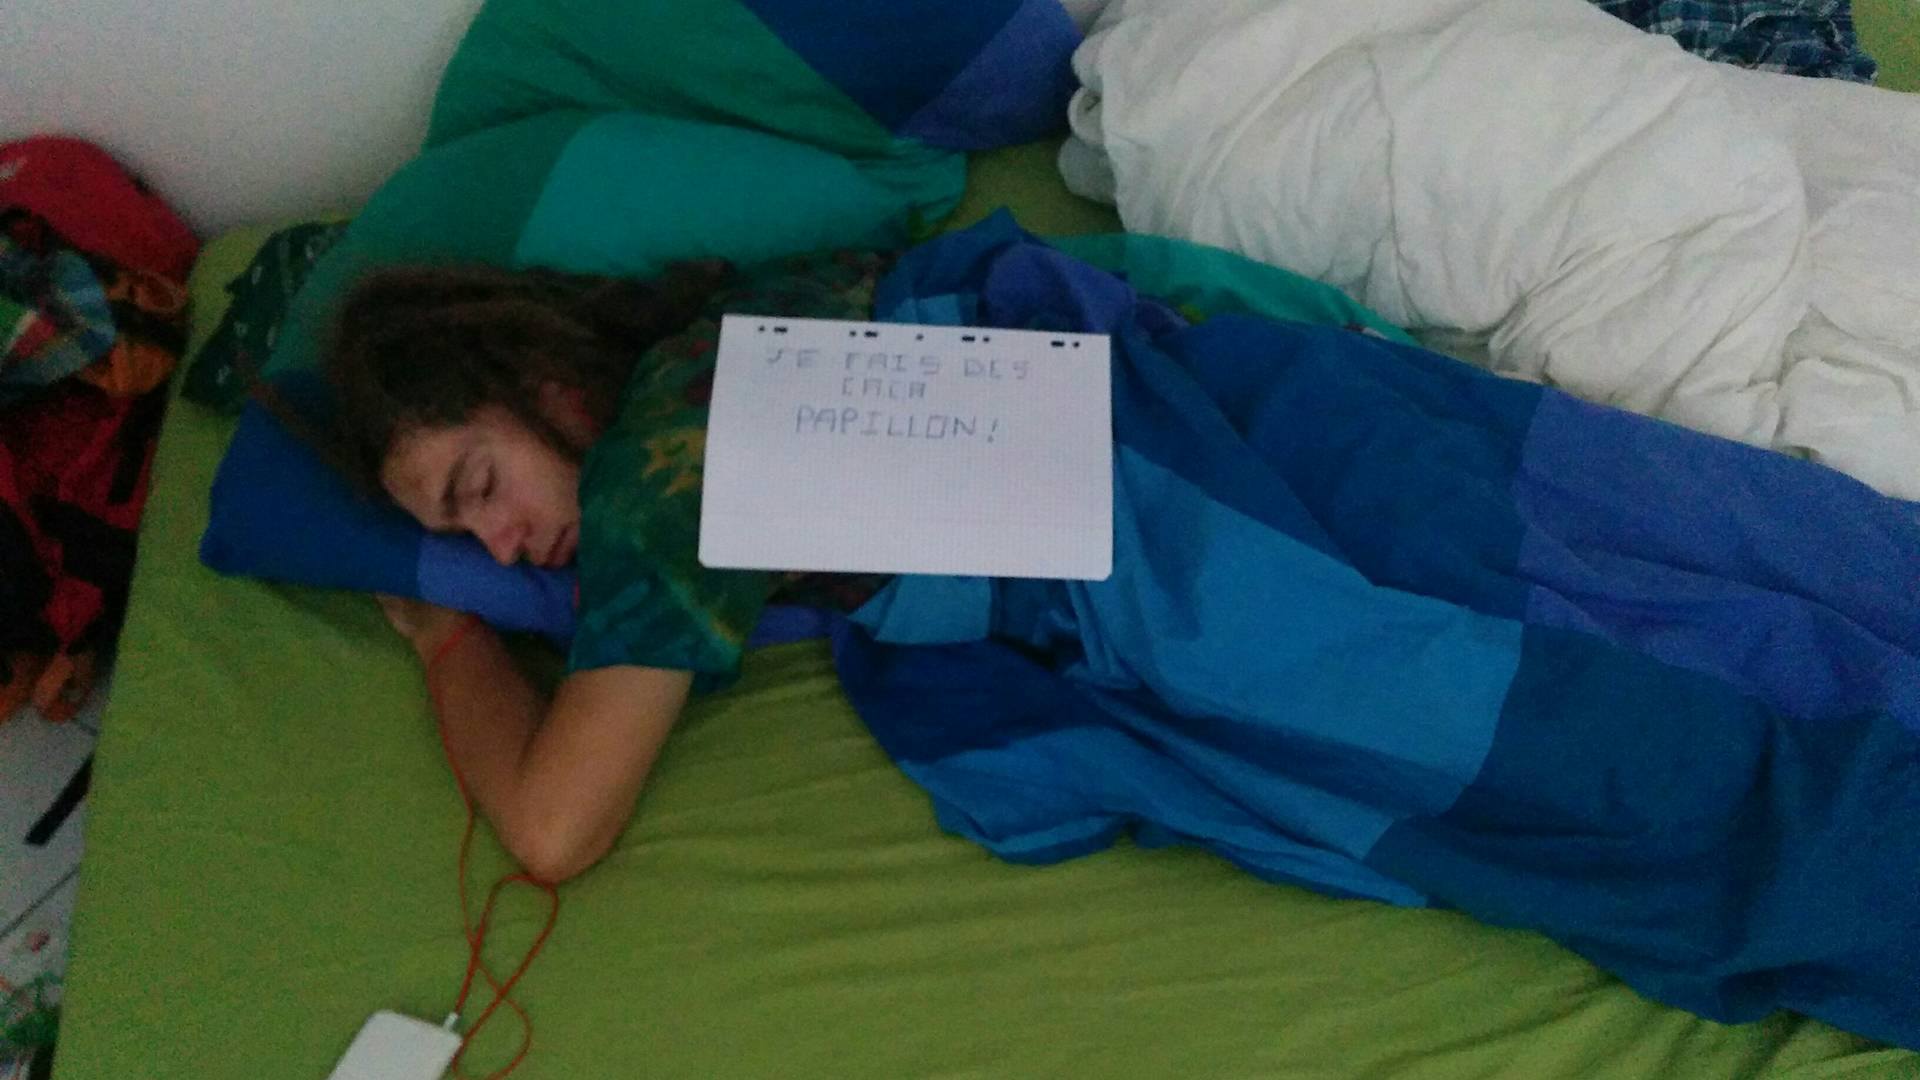 JE FAIS DES
CACA
PAPILLON!